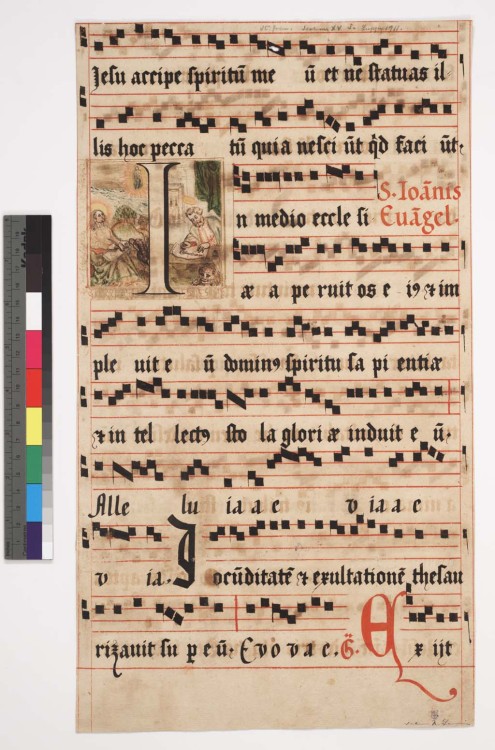 Jesu accipe spiritū me ū et ne statuas il
lis hoc pecca tū quia nesci ūt qd faci ūt.
S. Ioānis
I n medio eccle si Evāgel
æ a pe ruit os e i9 & im
ple uit e ū domin9 spiritu sa pi entiæ
& in tel lect9 sto la glori æ induit e ū.
Alle lu ia a e v ia a e
v ia. Jocūditatē & exultationē thesau
rizavit su p e ū. Evovae. G̃. Ex ijt